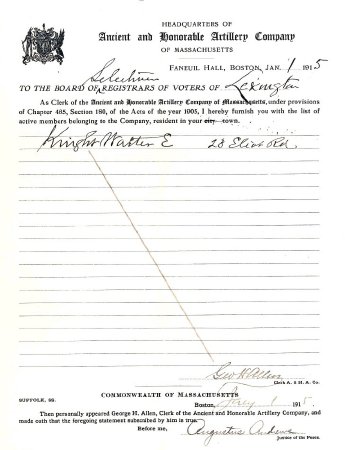 HEADQUARTERS OF
Ancient and Honorable Artillery Company
OF MASSACHUSETTS
FANEUIL HALL, BOSTON, JAN. 1 1915
Selectmen
TO THE BOARD OF REGISTRARS OF VOTERS OF Lexington
As Clerk of the Ancient and Honorable Artillery Company of Massachusetts, under provisions
of Chapter 465, Section 180, of the Acts of the year 1905, I hereby furnish you with the list of
active members belonging to the Company, resident in your city town.
Knight Walter E 28 Eliot Rd.
Geo H Allen
Clerk A. & H. A. Co.
COMMONWEALTH OF MASSACHUSETTS
SUFFOLK, SS.
Boston, 1 1915.
Then personally appeared George H. Allen, Clerk of the Ancient and Honorable Artillery Company, and
made oath that the foregoing statement subscribed by him is true.
Before me, Augustus Andrews
Justice of the Peace.